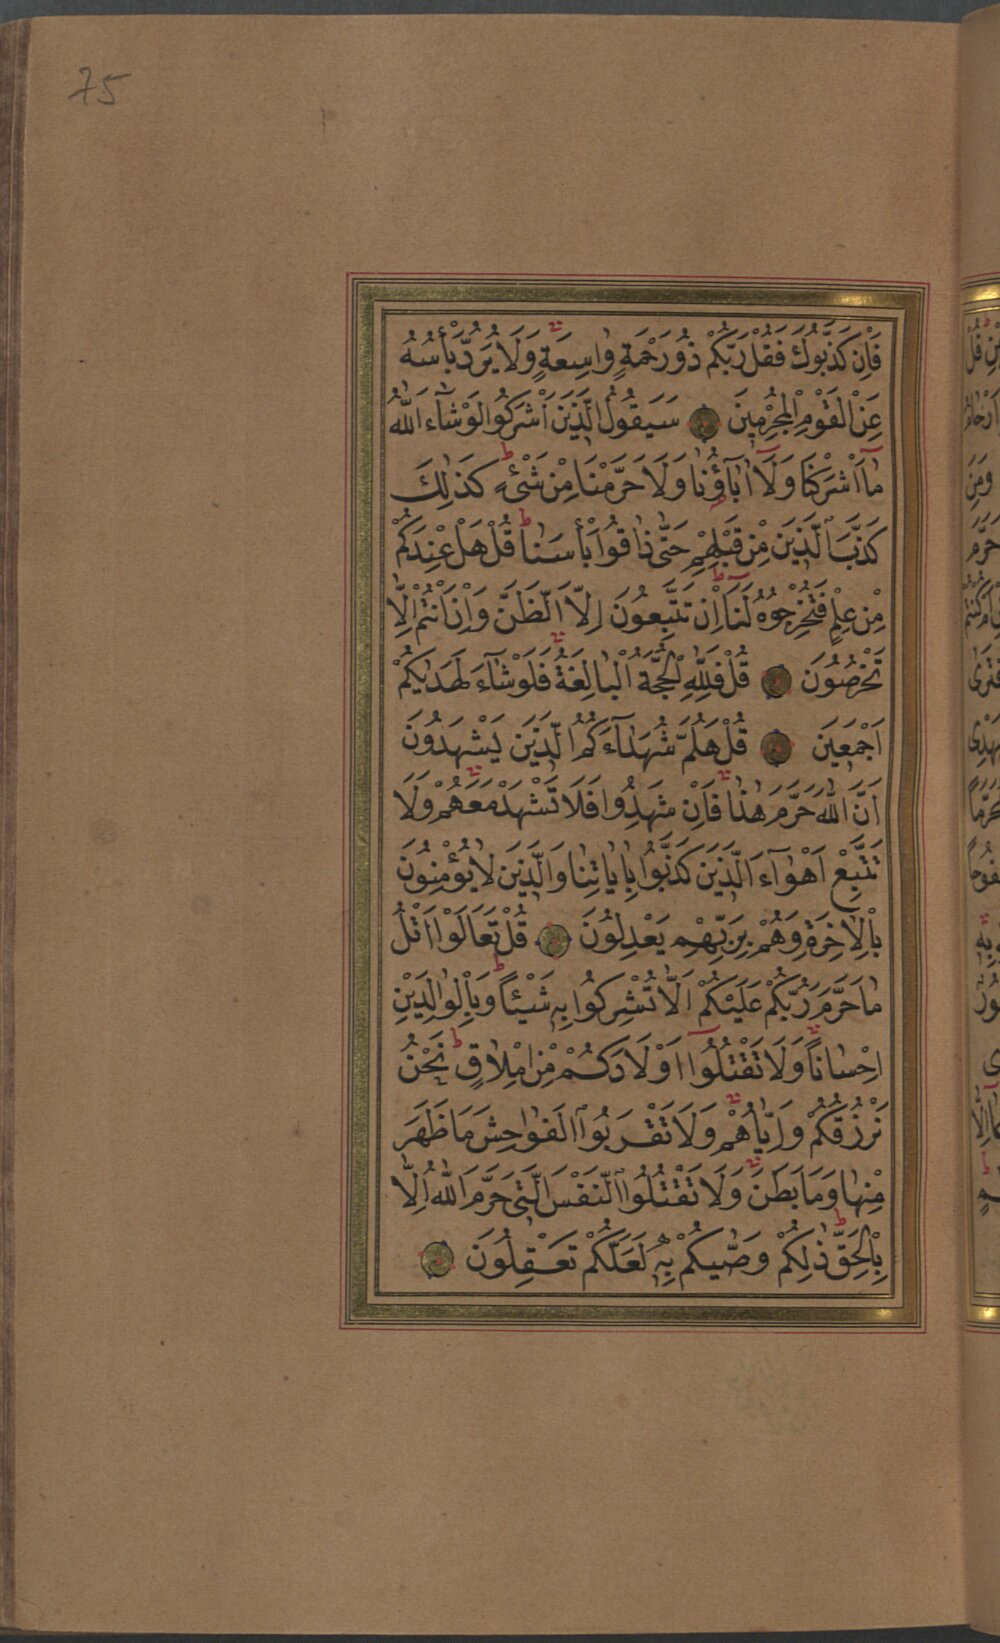 75
فَاِنْ كَذَّبُوكَ فَقُلْ رَبُّكُمْ ذُو رَحْمَةٍ وَاسِعَةٍ وَلَا يُرَدُّ بَأْسُهُ
عَنِ الْقَوْمِ الْمُجْرِمِينَ سَيَقُولُ الَّذِينَ اَشْرَكُوا لَوْ شَٓاءَ اللّٰهُ
مَٓا اَشْرَكْنَا وَلَٓا اٰبَٓاؤُ۬نَا وَلَا حَرَّمْنَا مِنْ شَيْءٍ كَذٰلِكَ
كَذَّبَ الَّذِينَ مِنْ قَبْلِهِمْ حَتّٰى ذَاقُوا بَأْسَنَا قُلْ هَلْ عِنْدَكُمْ
مِنْ عِلْمٍ فَتُخْرِجُوهُ لَنَا اِنْ تَتَّبِعُونَ اِلَّا الظَّنَّ وَاِنْ اَنْتُمْ اِلَّا
تَخْرُصُونَ قُلْ فَلِلّٰهِ الْحُجَّةُ الْبَالِغَةُ فَلَوْ شَٓاءَ لَهَدٰيكُمْ
اَجْمَعِينَ قُلْ هَلُمَّ شُهَدَٓاءَكُمُ الَّذِينَ يَشْهَدُونَ
اَنَّ اللّٰهَ حَرَّمَ هٰذَا فَاِنْ شَهِدُوا فَلَا تَشْهَدْ مَعَهُمْ وَلَا
تَتَّبِعْ اَهْوَٓاءَ الَّذِينَ كَذَّبُوا بِاٰيَاتِنَا وَالَّذِينَ لَا يُؤْمِنُونَ
بِالْاٰخِرَةِ وَهُمْ بِرَبِّهِمْ يَعْدِلُونَ قُلْ تَعَالَوْا اَتْلُ
مَا حَرَّمَ رَبُّكُمْ عَلَيْكُمْ اَلَّا تُشْرِكُوا بِهِ شَيْـًٔا وَبِالْوَالِدَيْنِ
اِحْسَانًا وَلَا تَقْتُلُٓوا اَوْلَادَكُمْ مِنْ اِمْلَاقٍ نَحْنُ
نَرْزُقُكُمْ وَاِيَّاهُمْ وَلَا تَقْرَبُوا الْفَوَاحِشَ مَا ظَهَرَ
مِنْهَا وَمَا بَطَنَ وَلَا تَقْتُلُوا النَّفْسَ الَّتِي حَرَّمَ اللّٰهُ اِلَّا
بِالْحَقِّ ذٰلِكُمْ وَصّٰيكُمْ بِهِ لَعَلَّكُمْ تَعْقِلُونَ